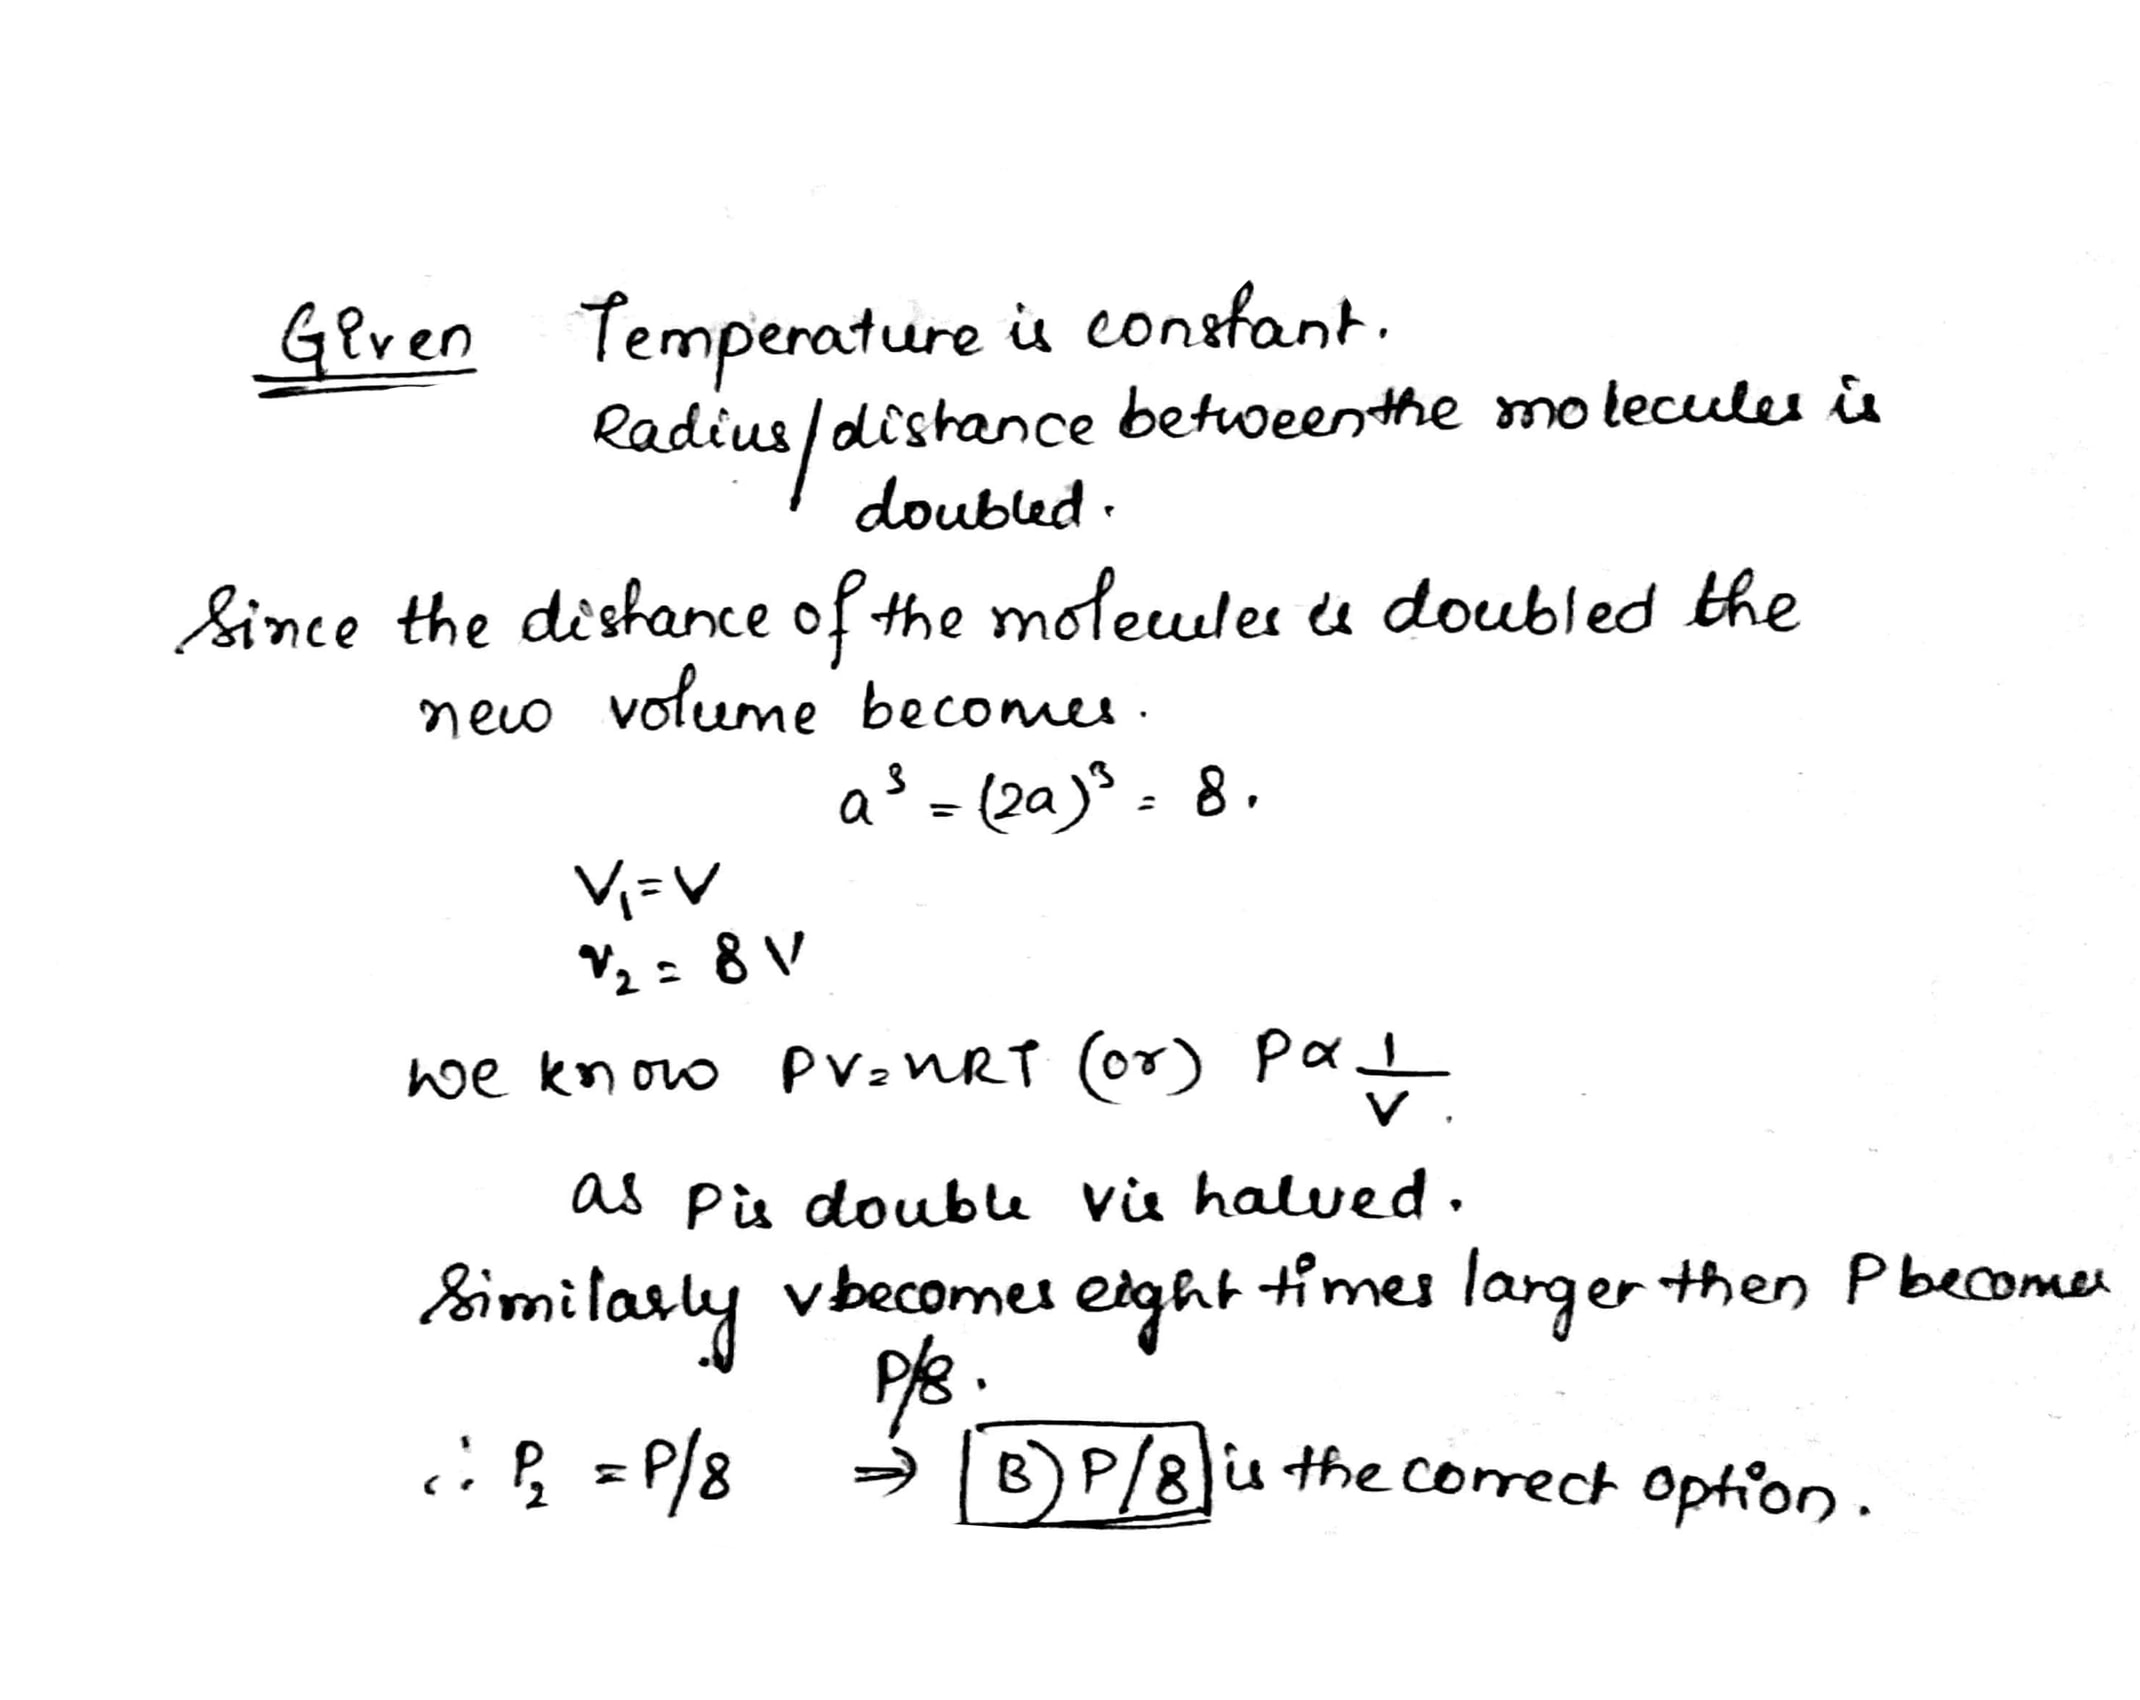 Given Temperature is constant.
Radius/distance between the molecules is
doubled.
Since the distance of the molecules is doubled the
new volume becomes.
a³ = (2a)³ = 8.
V₁ = V
V₂ = 8V
we know PV = nRT (or) P ∝ 1/V.
as P is double V is halved.
Similarly V becomes eight times larger then P becomes
P/8.
∴ P₂ = P/8 ⇒ B) P/8 is the correct option.